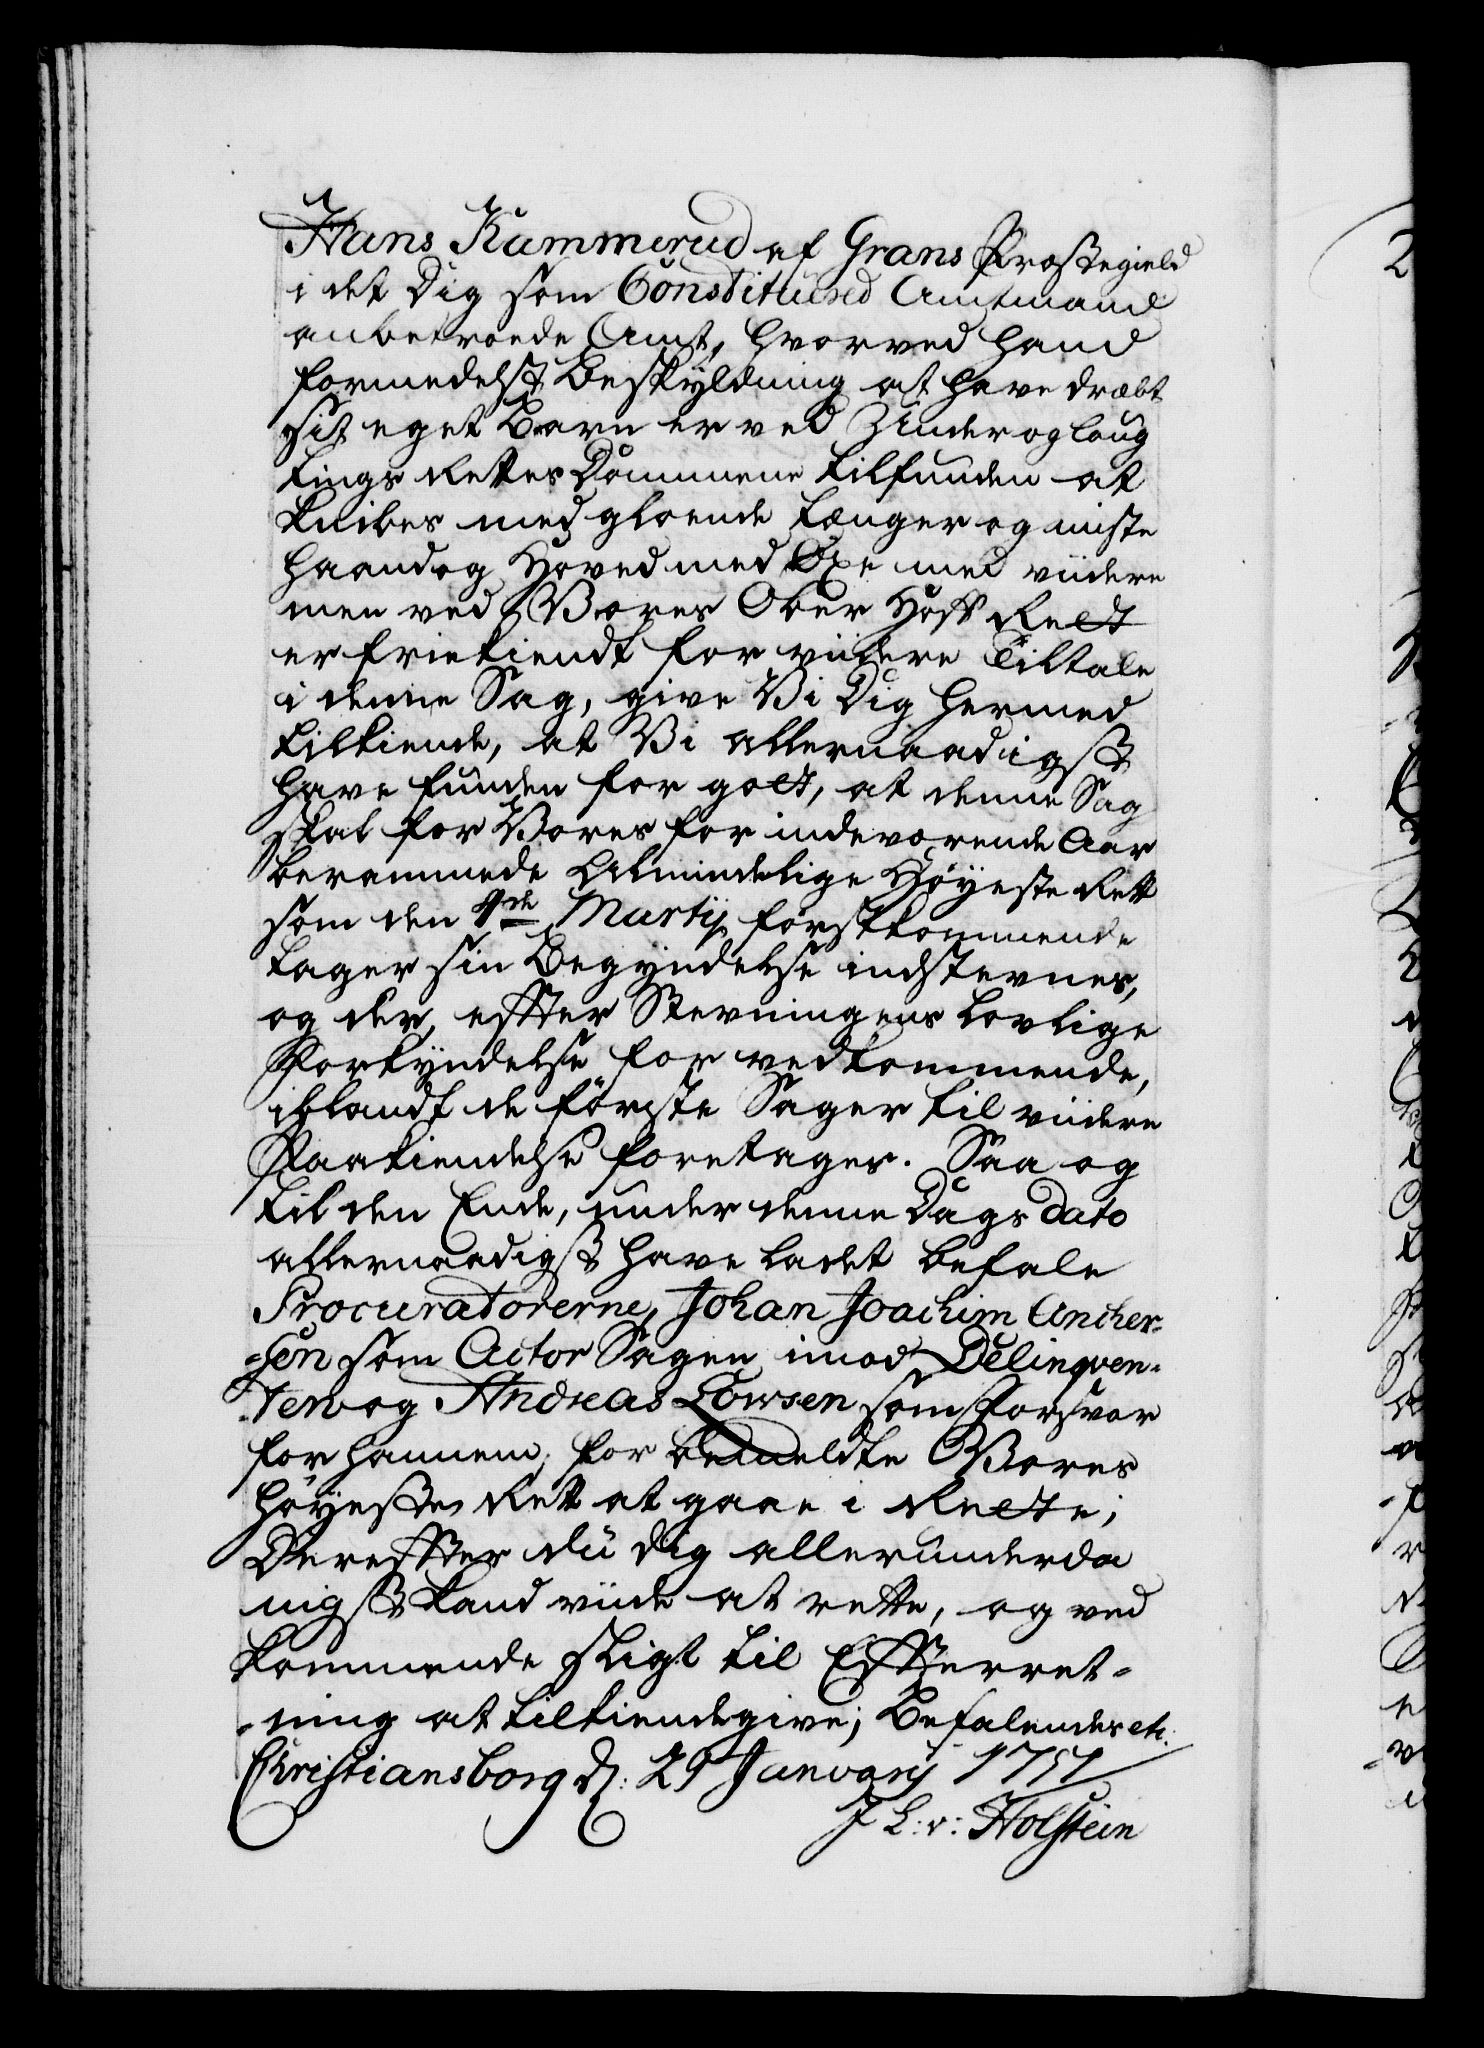 Hans Kammerud af Grans Præstegield
i det Dig som Constitured Amtmand
anbetroede Amt, hvorved hand
formedelst Beskyldning at have dræbt
sit eget Barn er ved Under og Laug
tings Rettes Dommene tilfunden at
knibes med gloende Tænger og miste
Haand og Hoved med Øxe med viidere
men ved Vores Ober Hoff Rett
er frikiendt for viidere Tiltale
i denne Sag, give Vi Dig hermed
tilkiende, at Vi allernaadigst
have funden for gott, at denne Sag
skal for Vores for indeværende Aar
berammede Almindelige Høyeste Rett
som den 4de Martij førstkommende
tager sin Begyndelse indstevnes,
og der, effter Stevningens lovlige
Forkyndelse for vedkommende,
iblandt de første Sager til viidere
Paakiendelse foretages. Saa og
til den Ende, under denne Dags dato
allernaadigst have ladet befale
Procuratorerne, Johan Joachim Ancher-
-sen som Actor Sagen imod Delinqven-
-ten og Andreas Lowsen som Forsvar
for hannem, for bemeldte Vores
Høyeste Rett at gaae i Rette;
Dereffter du dig allerunderda
nigst kand viide at rette, og ved
kommende sligt til Effterret-
-ning at tilkiendegive; Befalendes etc.
Christiansborg d: 29 January 1751
J L: v: Holstein